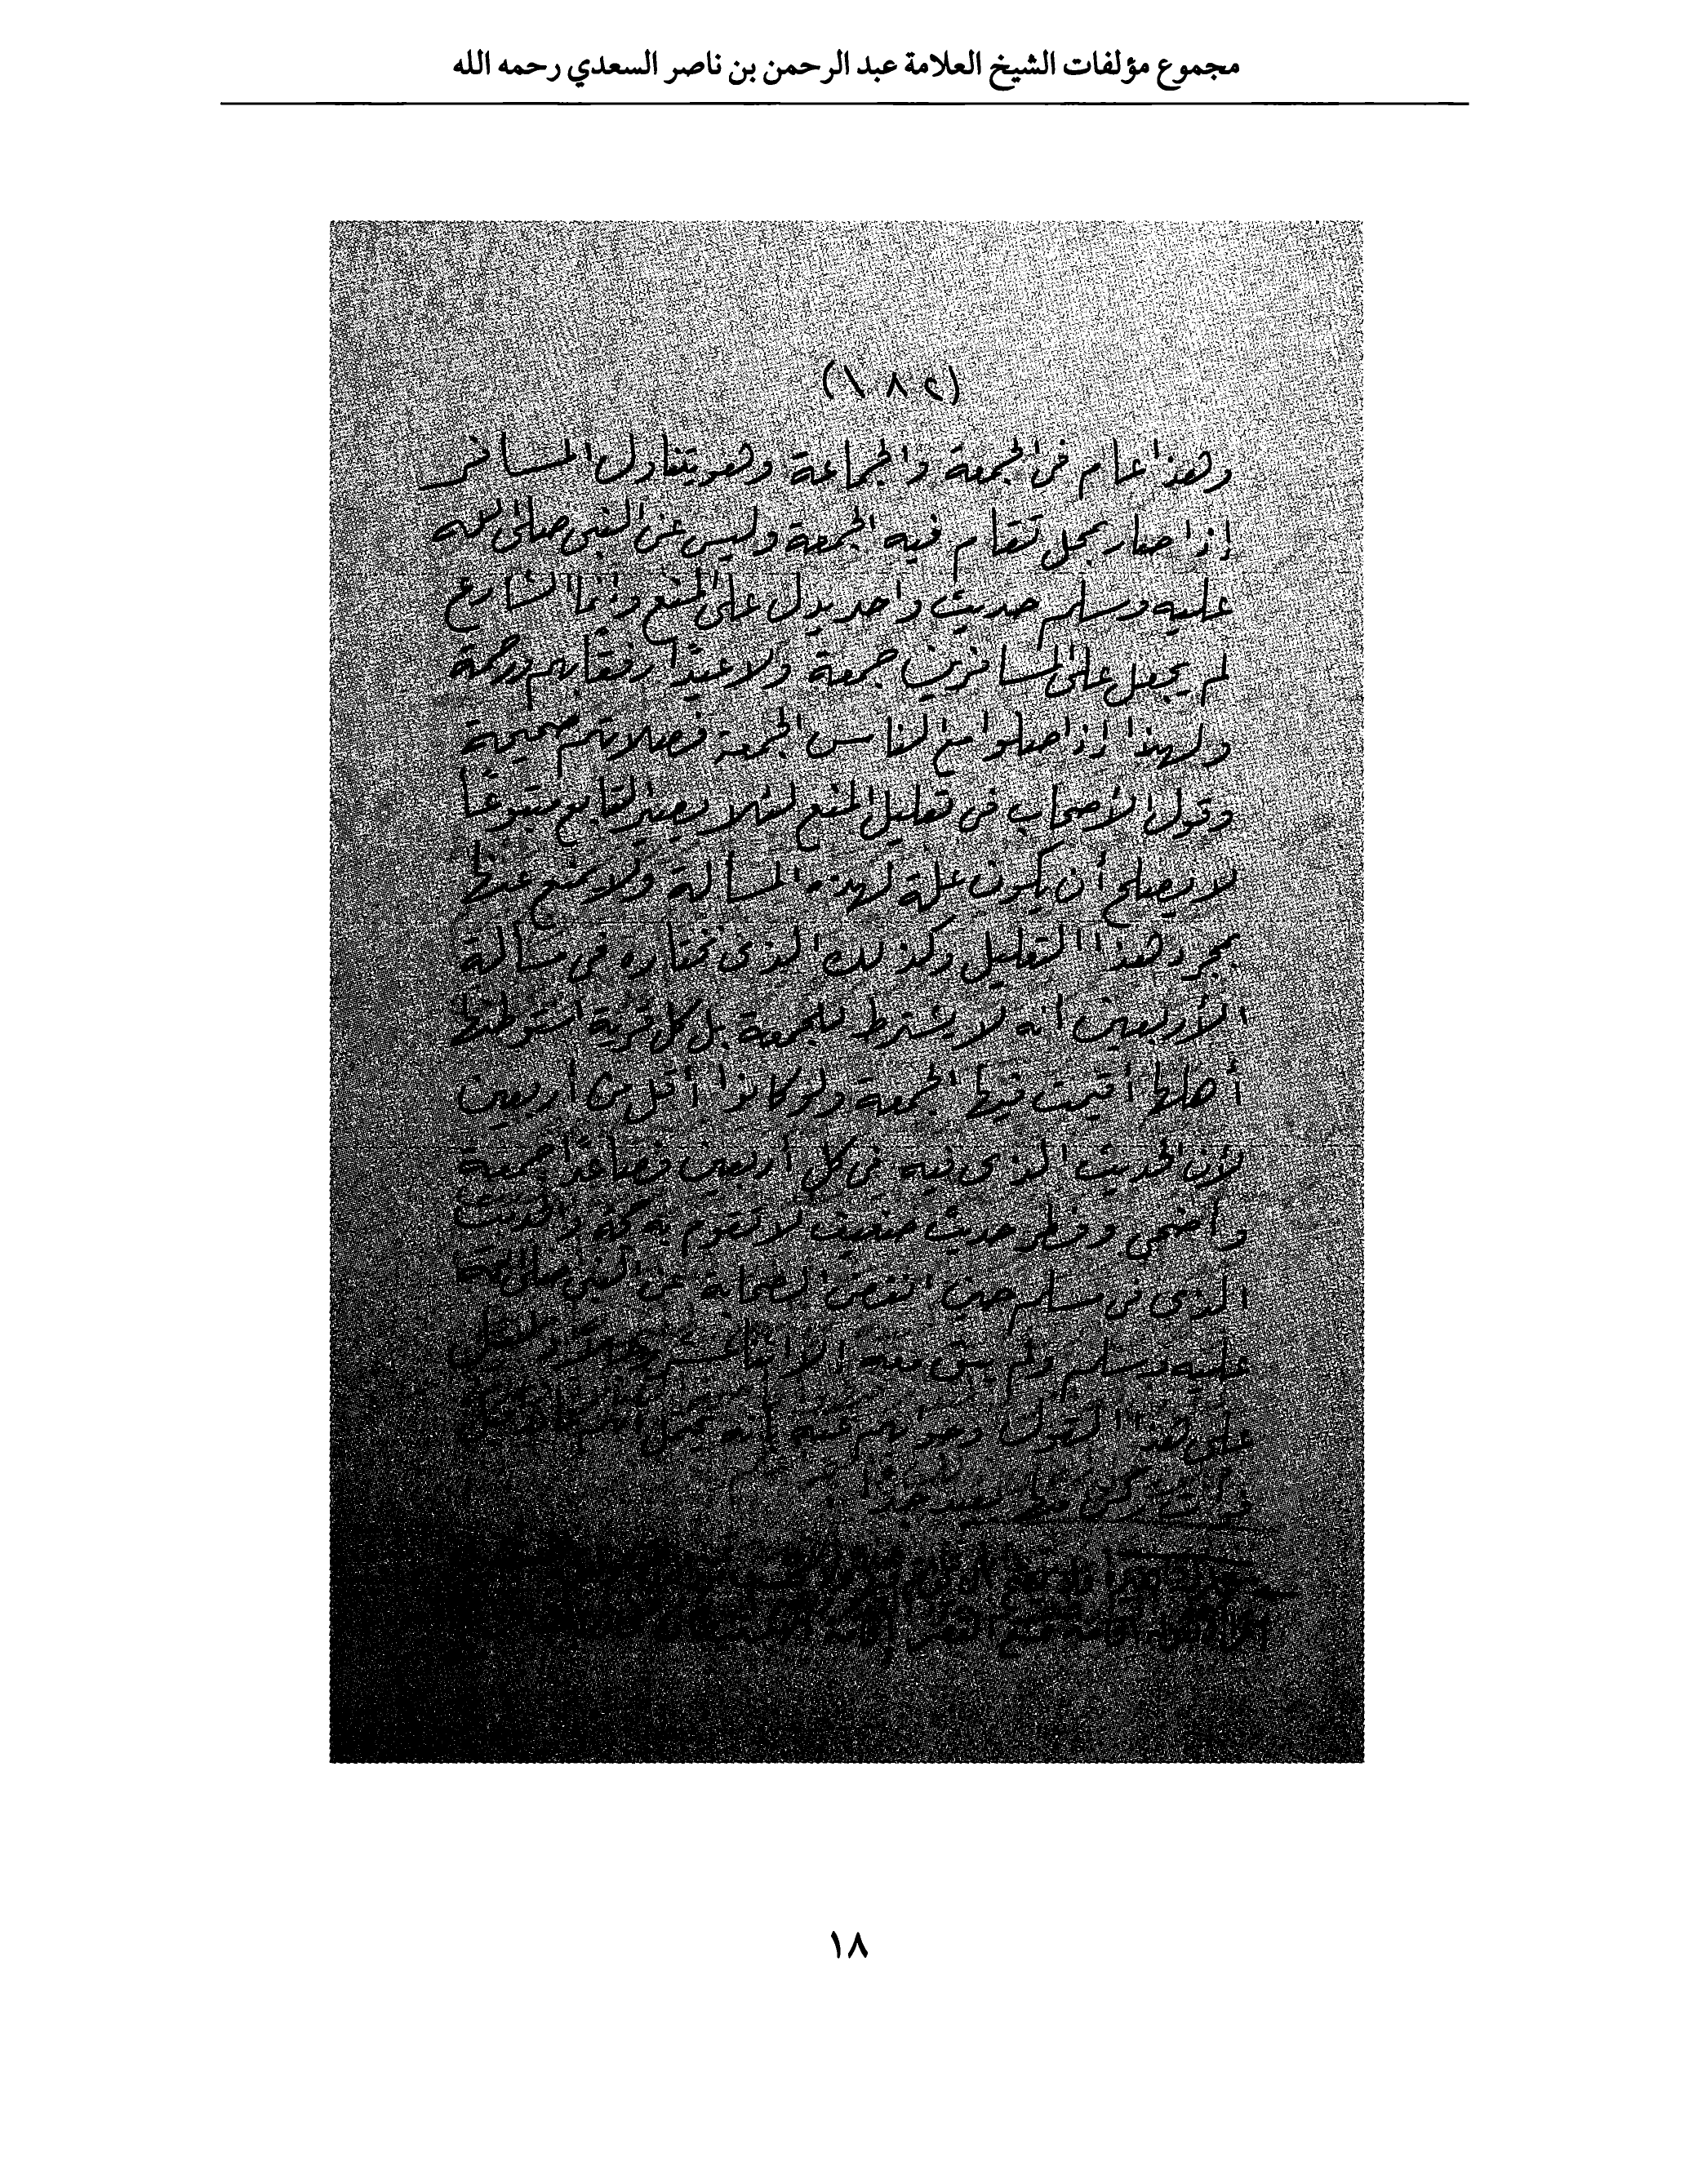 مجموع مؤلفات الشيخ العلامة عبد الرحمن بن ناصر السعدي رحمه الله
(١٨٢)
وهذا عام في الجمعة والجماعة وهو يتناول المسافر
إذا صار بمحل تقام فيه الجمعة وليس عن النبي صلى الله
عليه وسلم حديث واحد يدل على المنع وإنما الشارع
لم يجعل على المسافرين جمعة ولا عيدًا رفقًا بهم ورحمة
ولهذا إذا صلوا مع الناس الجمعة فصلاتهم صحيحة
وقول الأصحاب في تعليل المنع لئلا يصير التابع متبوعًا
لا يصلح أن يكون علة لهذه المسألة ولا يمنع عنها
بمجرد هذا التعليل وكذلك الذي نختاره في مسألة
الأربعين أنه لا يشترط للجمعة بل كل قرية استوطنها
أهلها أقيمت فيها الجمعة ولو كانوا أقل من أربعين
لأن الحديث الذي فيه في كل أربعين فصاعدًا جمعة
وأضحى وفطر حديث ضعيف لا تقوم به حجة والحديث
الذي في مسلم حين انفض الصحابة عن النبي صلى الله
عليه وسلم ولم يبق معه إلا اثنا عشر رجلاً
على هذا القول وجوابهم عنه بأنه يحتمل أنهم
بعيد جدًا
١٨